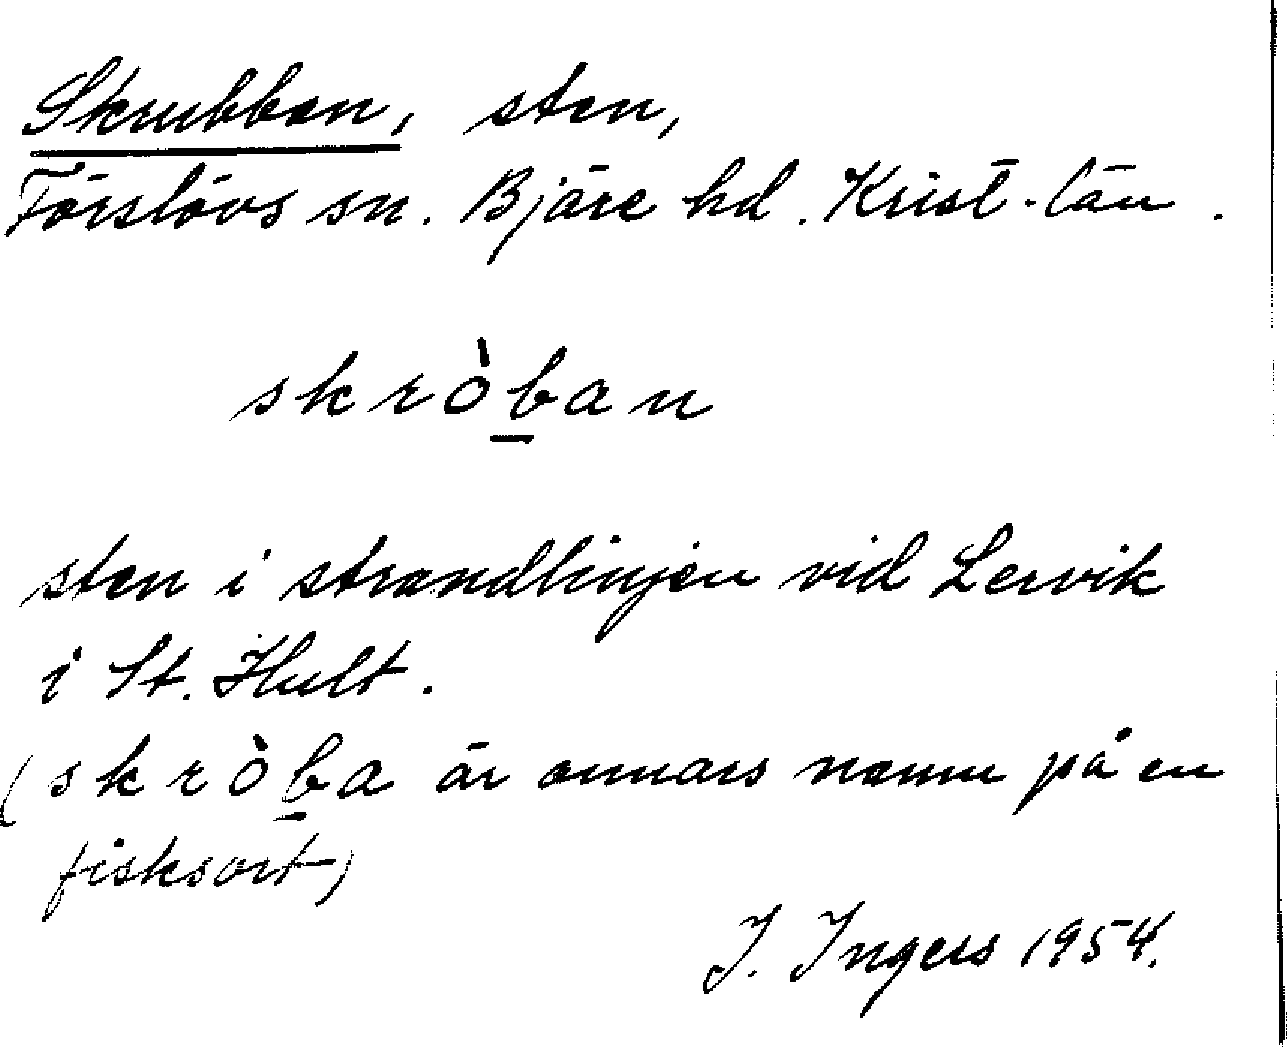 Skrubban, sten,
Förslövs sn. Bjäre hd. Krist. län.
skròb̲an
sten i strandlinjen vid Lervik
i St. Hult.
(skròb̲a är annars namn på en
fisksort)
I. Ingers 1954.